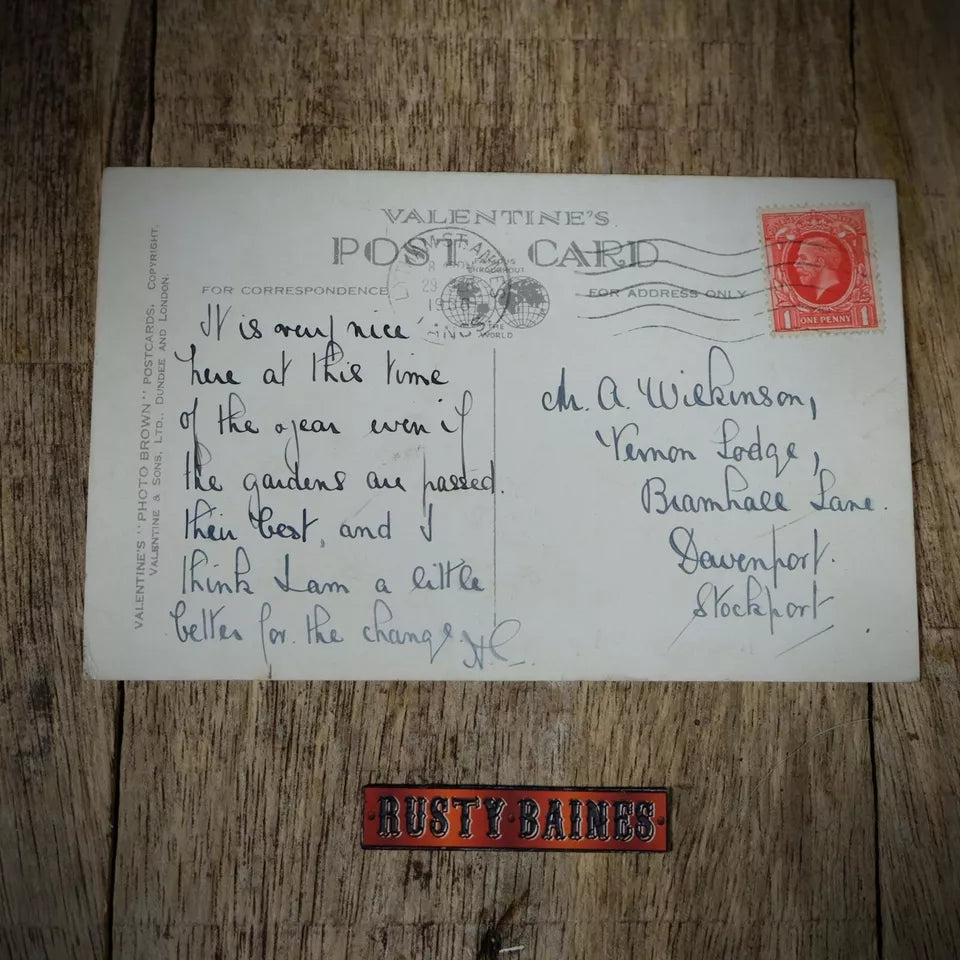 VALENTINE'S
POST CARD
FAMOUS
THROUGHOUT
THE
WORLD
FOR CORRESPONDENCE
FOR ADDRESS ONLY
VALENTINE'S "PHOTO BROWN" POSTCARDS, COPYRIGHT.
VALENTINE & SONS, LTD., DUNDEE AND LONDON.
It is very nice
here at this time
of the year even if
the gardens are passed.
their best, and I
think I am a little
better for the change
Mr. A. Wilkinson,
Vernon Lodge,
Bramhall Lane.
Davenport.
Stockport
1 ONE PENNY 1
RUSTY BAINES